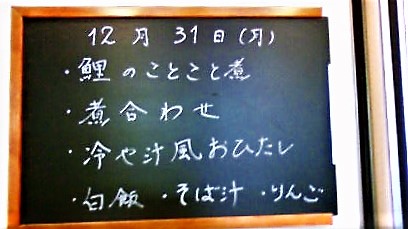 12月31日(月)
・鯉のことこと煮
・煮合わせ
・冷や汁風おひたし
・白飯・そば汁・りんご